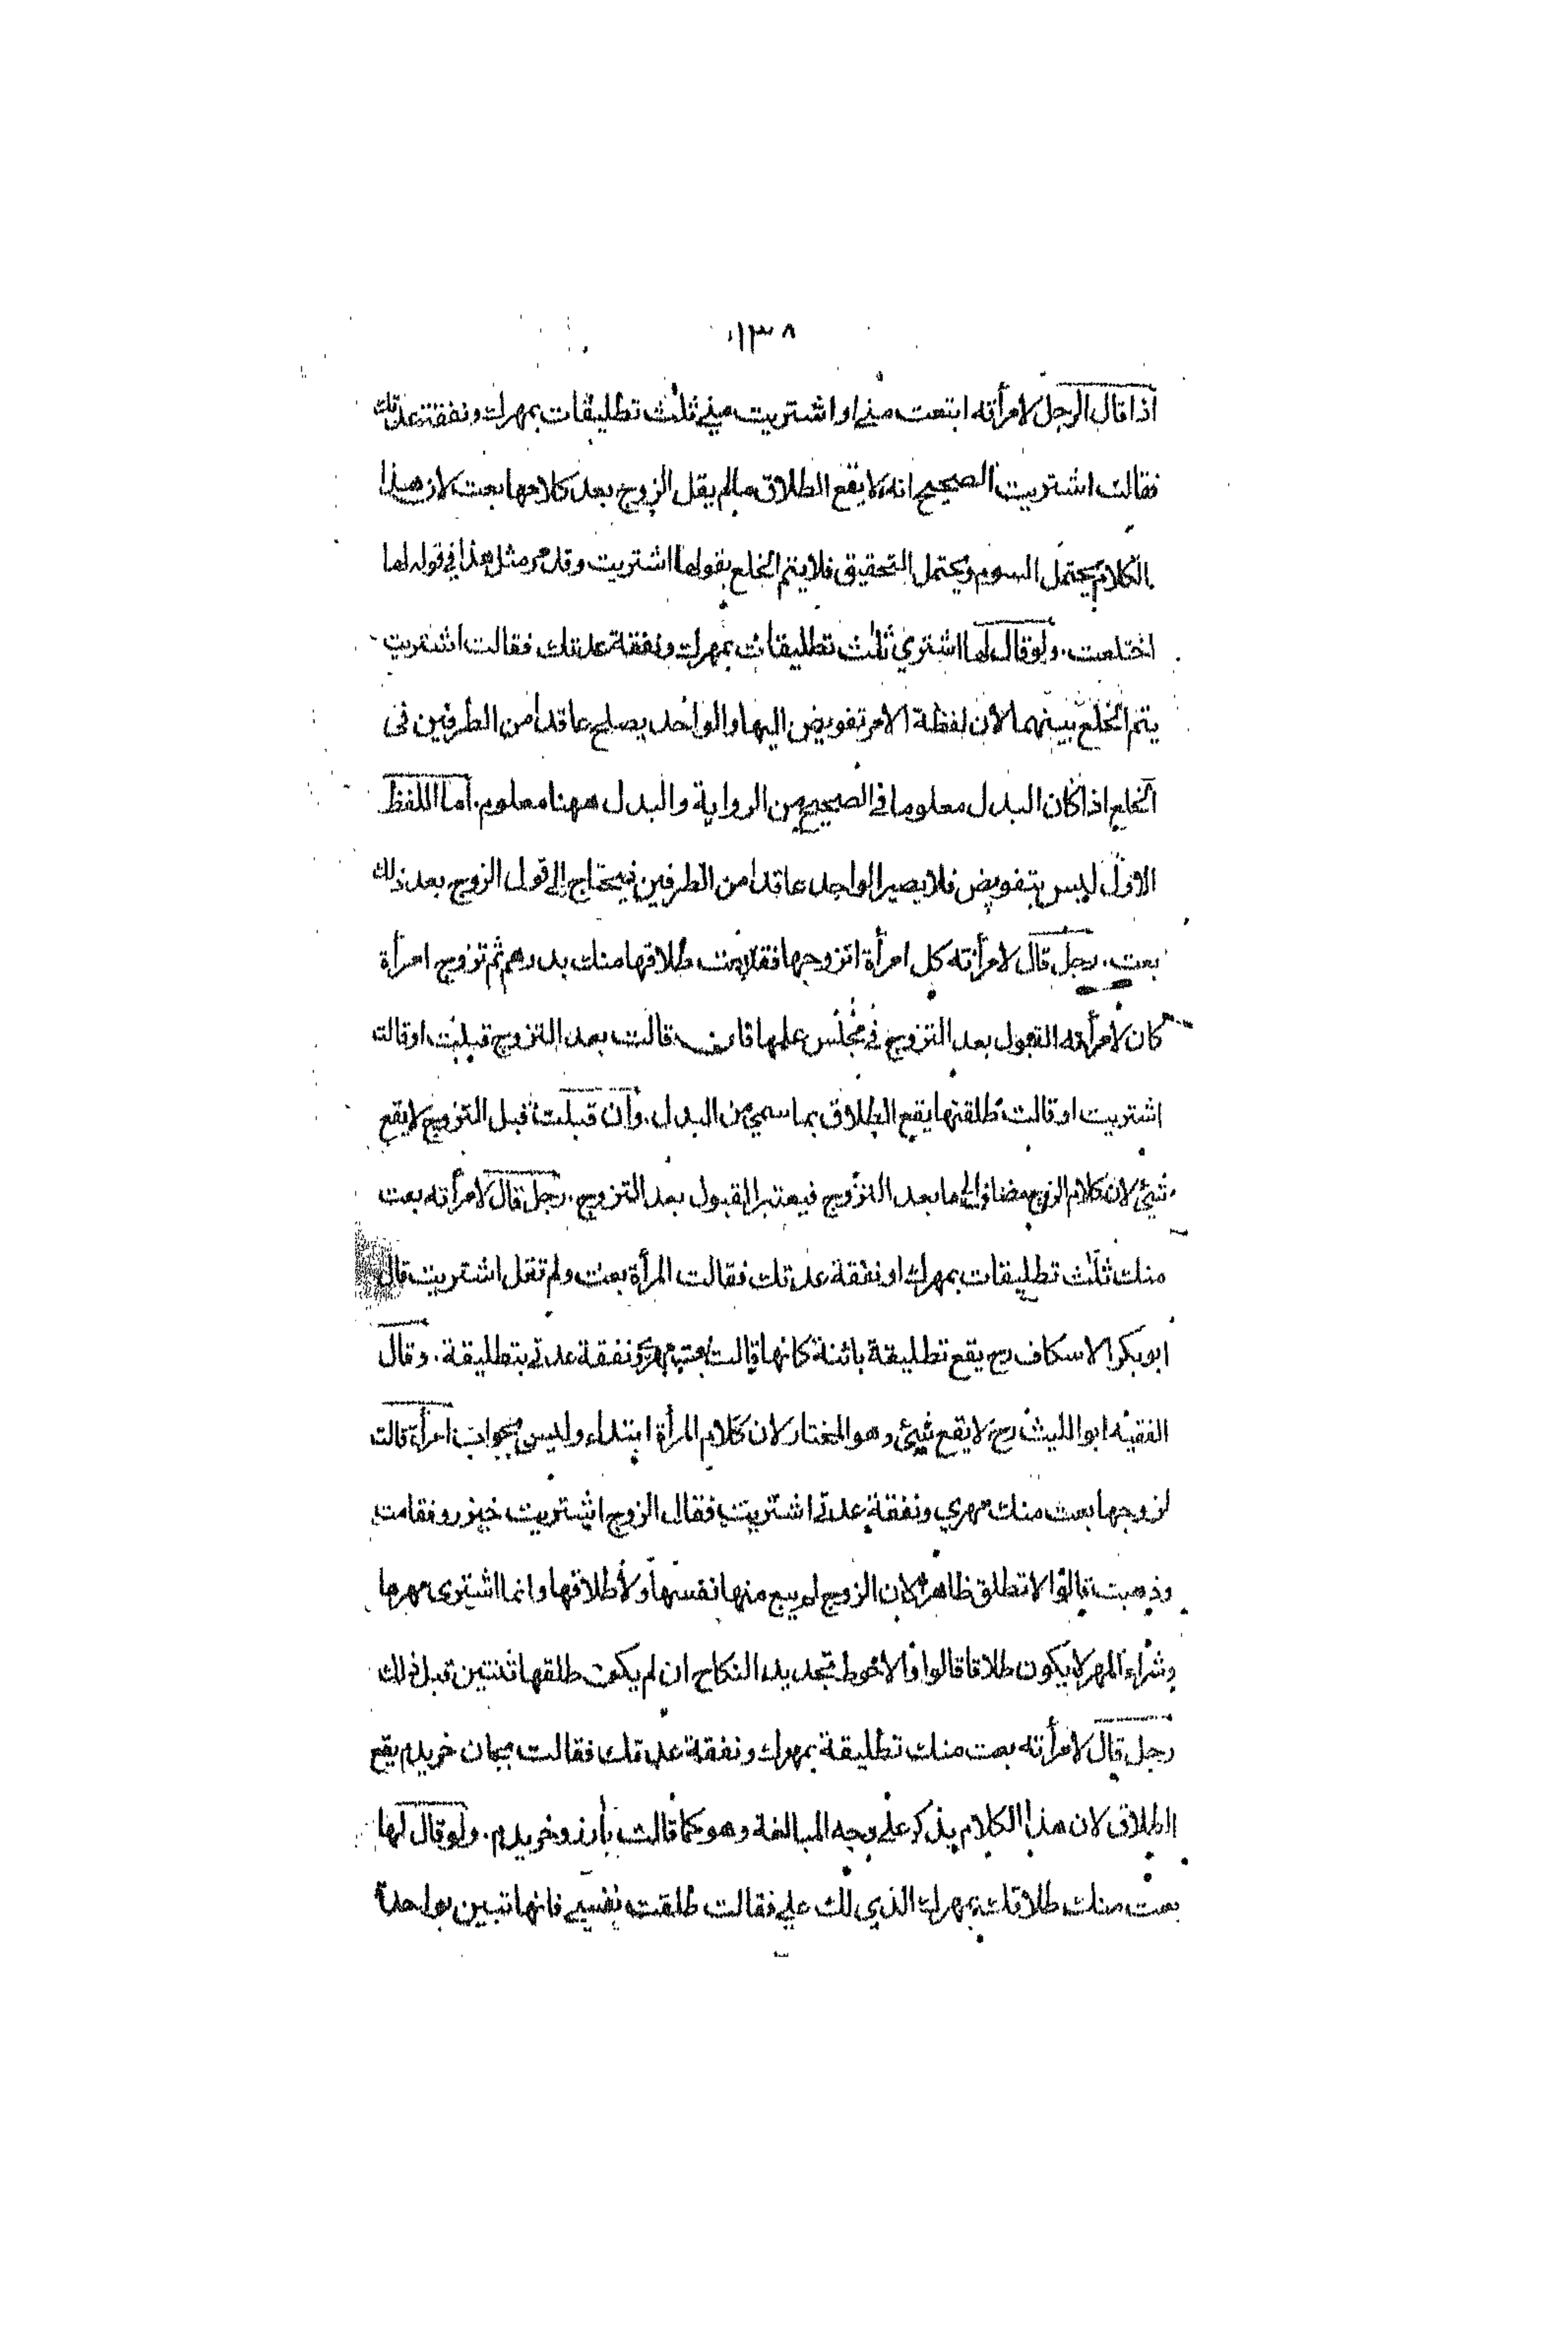 ١٣٨
اذا قال الرجل لامرأته ابتعت مني او اشتريت مني ثلث تطليقات بمهرك ونفقة عدتك
فقالت اشتريت الصحيح انه لا يقع الطلاق ما لم يقل الزوج بعد كلامها بعت لان هذا
الكلام يحتمل السوم ويحتمل التحقيق فلا يتم الخلع بقولها اشتريت وقد مر مثل هذا في قوله لها
اختلعت. ولو قال لها اشتري ثلث تطليقات بمهرك ونفقة عدتك فقالت اشتريت
يتم الخلع بينهما لان لفظة الامر تفويض اليها والواحد يصلح عاقدا من الطرفين في
الخلع اذا كان البدل معلوما في الصحيح من الرواية والبدل ههنا معلوم. اما اللفظ
الاول ليس بتفويض فلا يصير الواحد عاقدا من الطرفين فيحتاج الى قول الزوج بعد ذلك
بعت. رجل قال لامرأته كل امرأة اتزوجها فقد بعت طلاقها منك بدرهم ثم تزوج امرأة
كان لامرأته القبول بعد التزوج في مجلس علمها فان قالت بعد التزوج قبلت او قالت
اشتريت او قالت طلقتها يقع الطلاق بما سمي من البدل. وان قبلت قبل التزوج لا يقع
شيئ لان كلام الزوج مضاف الى ما بعد التزوج فيعتبر القبول بعد التزوج. رجل قال لامرأته بعت
منك ثلث تطليقات بمهرك او نفقة عدتك فقالت المرأة بعت ولم تقل اشتريت قال
ابو بكر الاسكاف رح يقع تطليقة بائنة كانها قالت بعت مهري ونفقة عدتي بتطليقة. وقال
الفقيه ابو الليث رح لا يقع شيئ وهو المختار لان كلام المرأة ابتداء وليس بجواب امرأة قالت
لزوجها بعت منك مهري ونفقة عدتي اشتريت فقال الزوج اشتريت خيز رو فقامت
وذهبت قالوا لا تطلق ظاهرا لان الزوج لم يبع منها نفسها ولا طلاقها وانما اشترى مهرها
وشراء المهر لا يكون طلاقا قالوا والاحوط تجديد النكاح ان لم يكن طلقها ثنتين قبل ذلك
رجل قال لامرأته بعت منك تطليقة بمهرك ونفقة عدتك فقالت بجان خريدم يقع
الطلاق لان هذا الكلام يذكر على وجه المبالغة وهو كما قالت بآرزو خريدم. ولو قال لها
بعت منك طلاقك بمهرك الذي لك علي فقالت طلقت نفسي فانها تبين بواحدة